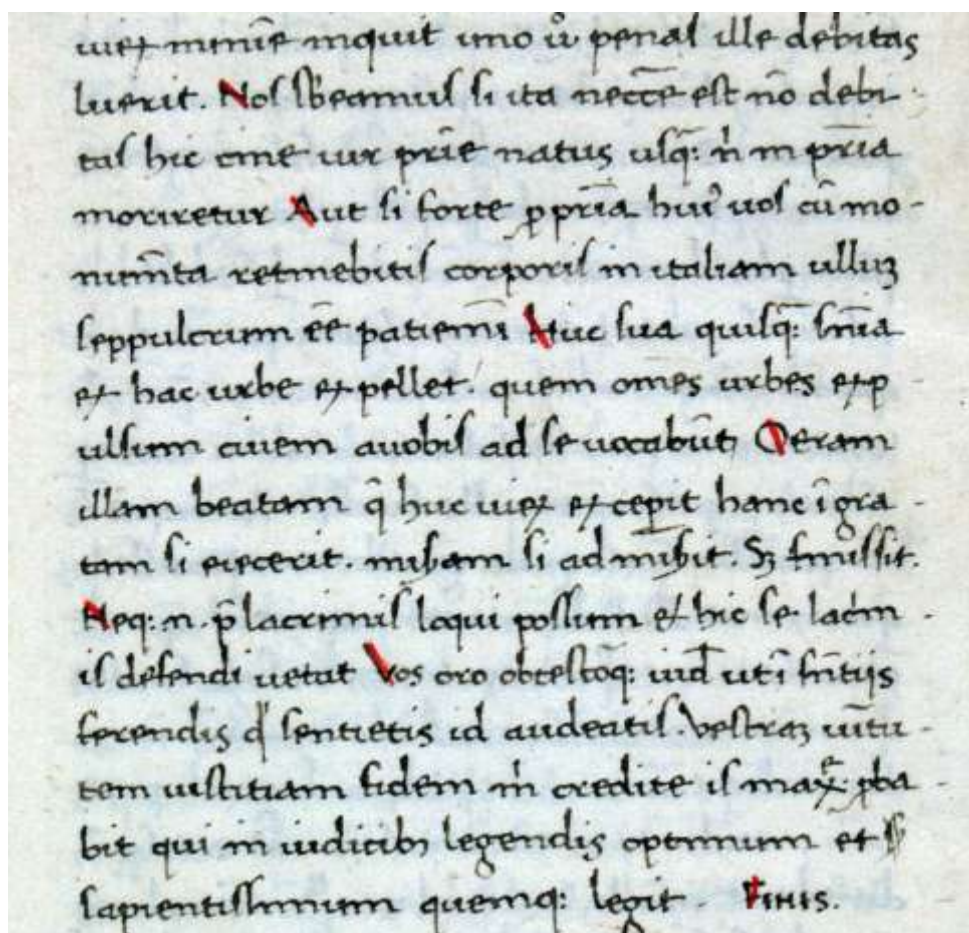 uiex minīe inquit imo ůo penas ille debitas
luerit. Nos sb̄eamus si ita necc̄e est nō debi-
tas hic cine uir prīe natus usq̄: n̍ in prīa
moriretur Aut si forte ꝑ prīa hui᾽ uos cū mo-
num̄ta retinebitis corporis in italiam ulluꝫ
seppulcrum ēē patiem̄i Huc sua quisq̄: sn̄ia
ex hac urbe expellet. quem om̄es urbes exp
ulsum ciuem auobis ad se uocabūt; Oeram
illam beatam q̄ huc uiex ex cepit hanc īgra-
tam si eiecerit. misam si ad misbit. Sꝫ finissit.
Neq: n. p̄ lacrimis loqui possum et hic se lacim-
is defendi uetat Vos oro obtestoq̄: iud̄ ut ī sn̄tijs
ferendis qđ sentietis id audeatis. Vestraꝫ uītu-
tem iustitiam fidem m̍ credite is max̄e ꝓba-
bit qui in iudicibꝫ legendis optimum et
sapientissimum quemq: legit. Finis.